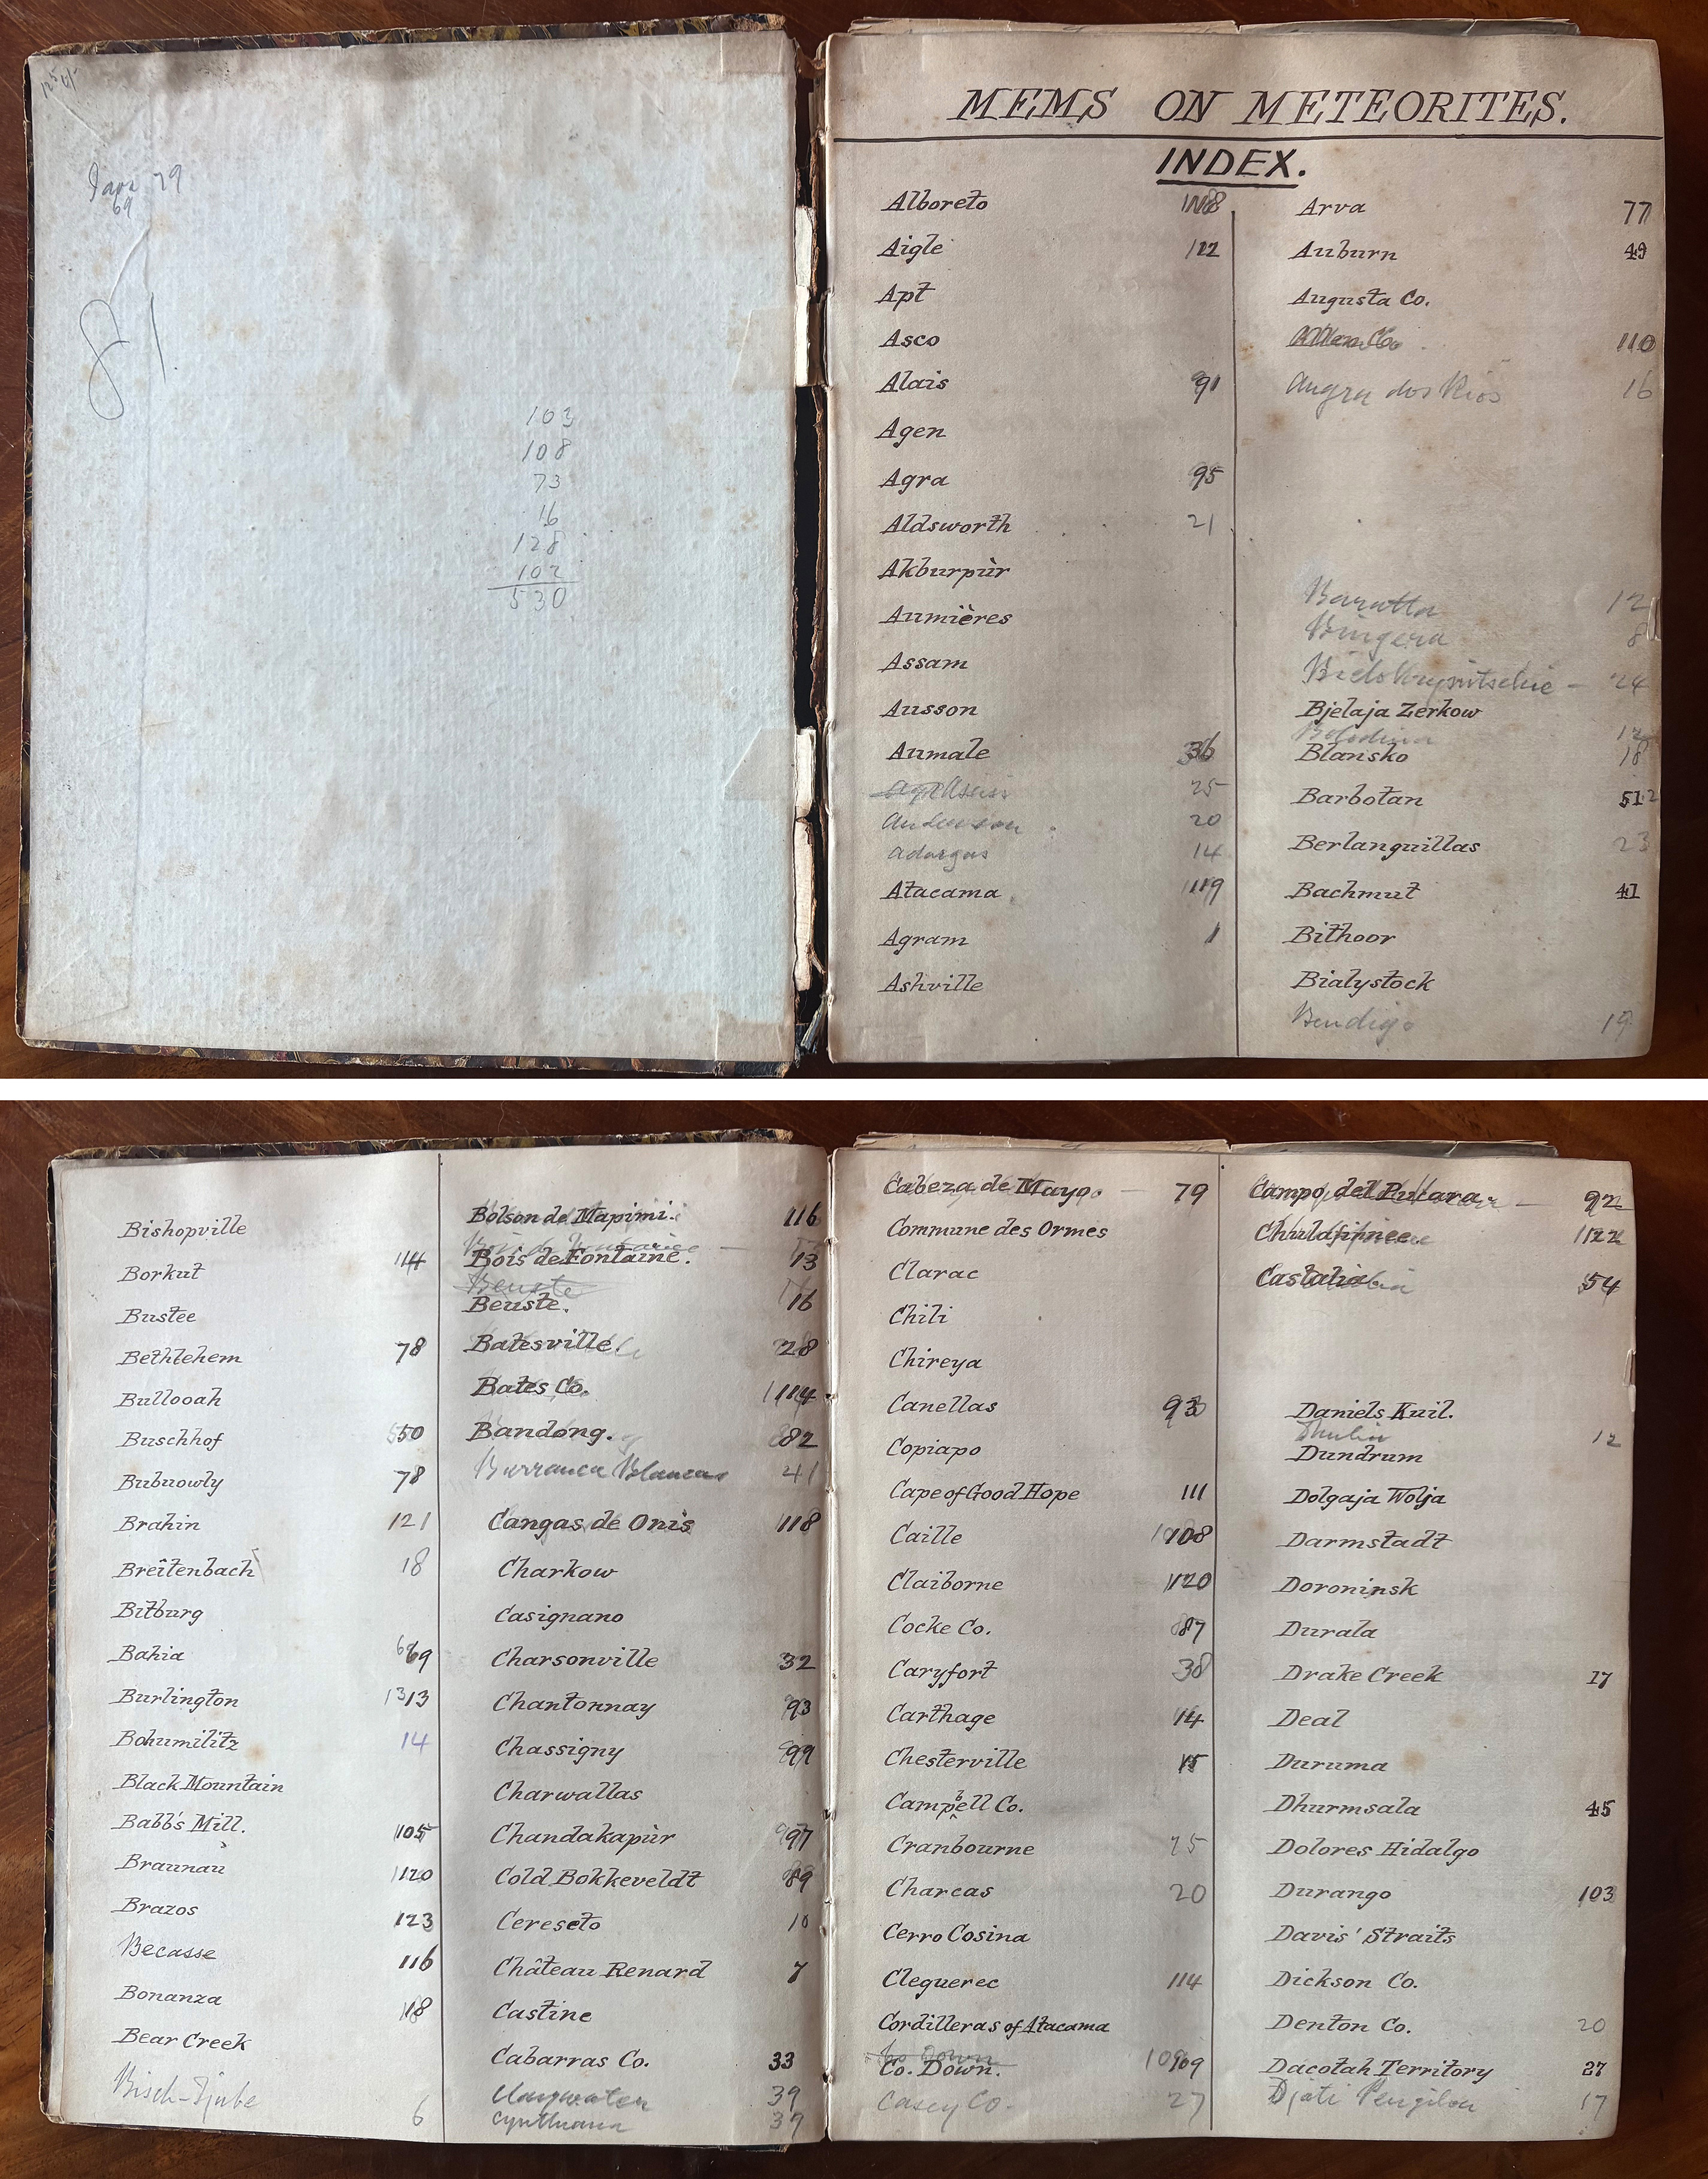 Java 79
69
81.
103
108
73
16
128
102
530
MEMS ON METEORITES.
INDEX.
Alboreto
Aigle 112
Apt
Asco
Alais 91
Agen
Agra 95
Aldsworth 21
Akburpùr
Aumières
Assam
Ausson
Aumale 36
25
Anderson 20
Adargas 14
Atacama 119
Agram 1
Ashville
Arva 77
Auburn 49
Augusta Co.
Allen Co. 110
Angra dos Rios 16
Baratta 12
Bingera 8
24
Bjelaja Zerkow
12
Blansko 18
Barbotan 51
Berlanguillas 23
Bachmut 41
Bithoor
Bialystock
Bendigo 19
Bishopville
Borkut 114
Bustee
Bethlehem 78
Bullooah
Buschhof 50
Bubuowly 78
Brahin 121
Breitenbach 18
Bitburg
Bahia 69
Burlington 13
Bohumilitz 14
Black Mountain
Babb's Mill. 105
Braunau 120
Brazos 123
Becasse 116
Bonanza 118
Bear Creek
Bisch-Tjube 6
Bolson de Mapimi. 116
Bois de Fontaine. 13
Beuste
Beuste. 16
Batesville. 28
Bates Co. 114
Bandong. 82
Barranca Blanca 41
Cangas de Onis 118
Charkow
Casignano
Charsonville 32
Chantonnay 93
Chassigny 99
Charwallas
Chandakapùr 97
Cold Bokkeveldt 89
Cereseto 10
Château Renard 7
Castine
Cabarras Co. 33
Claywater 39
Cynthiana 39
Cabeza de Mayo. — 79
Commune des Ormes
Clarac
Chili
Chireya
Canellas 93
Copiapo
Cape of Good Hope 111
Caille 108
Claiborne 120
Cocke Co. 87
Caryfort 38
Carthage 14
Chesterville 15
Campbell Co.
Cranbourne 25
Charcas 20
Cerro Cosina
Cleguerec 114
Cordilleras of Atacama
Co Down
Co. Down. 109
Casey Co. 27
Campo del Pucara — 92
Chulafinnee. 122
Castalia 54
Daniels Kuil.
Dhulia 12
Dundrum
Dolgaja Wolja
Darmstadt
Doroninsk
Durala
Drake Creek 17
Deal
Duruma
Dhurmsala 45
Dolores Hidalgo
Durango 103
Davis' Straits
Dickson Co.
Denton Co. 20
Dacotah Territory 27
Djati Pengilon 17